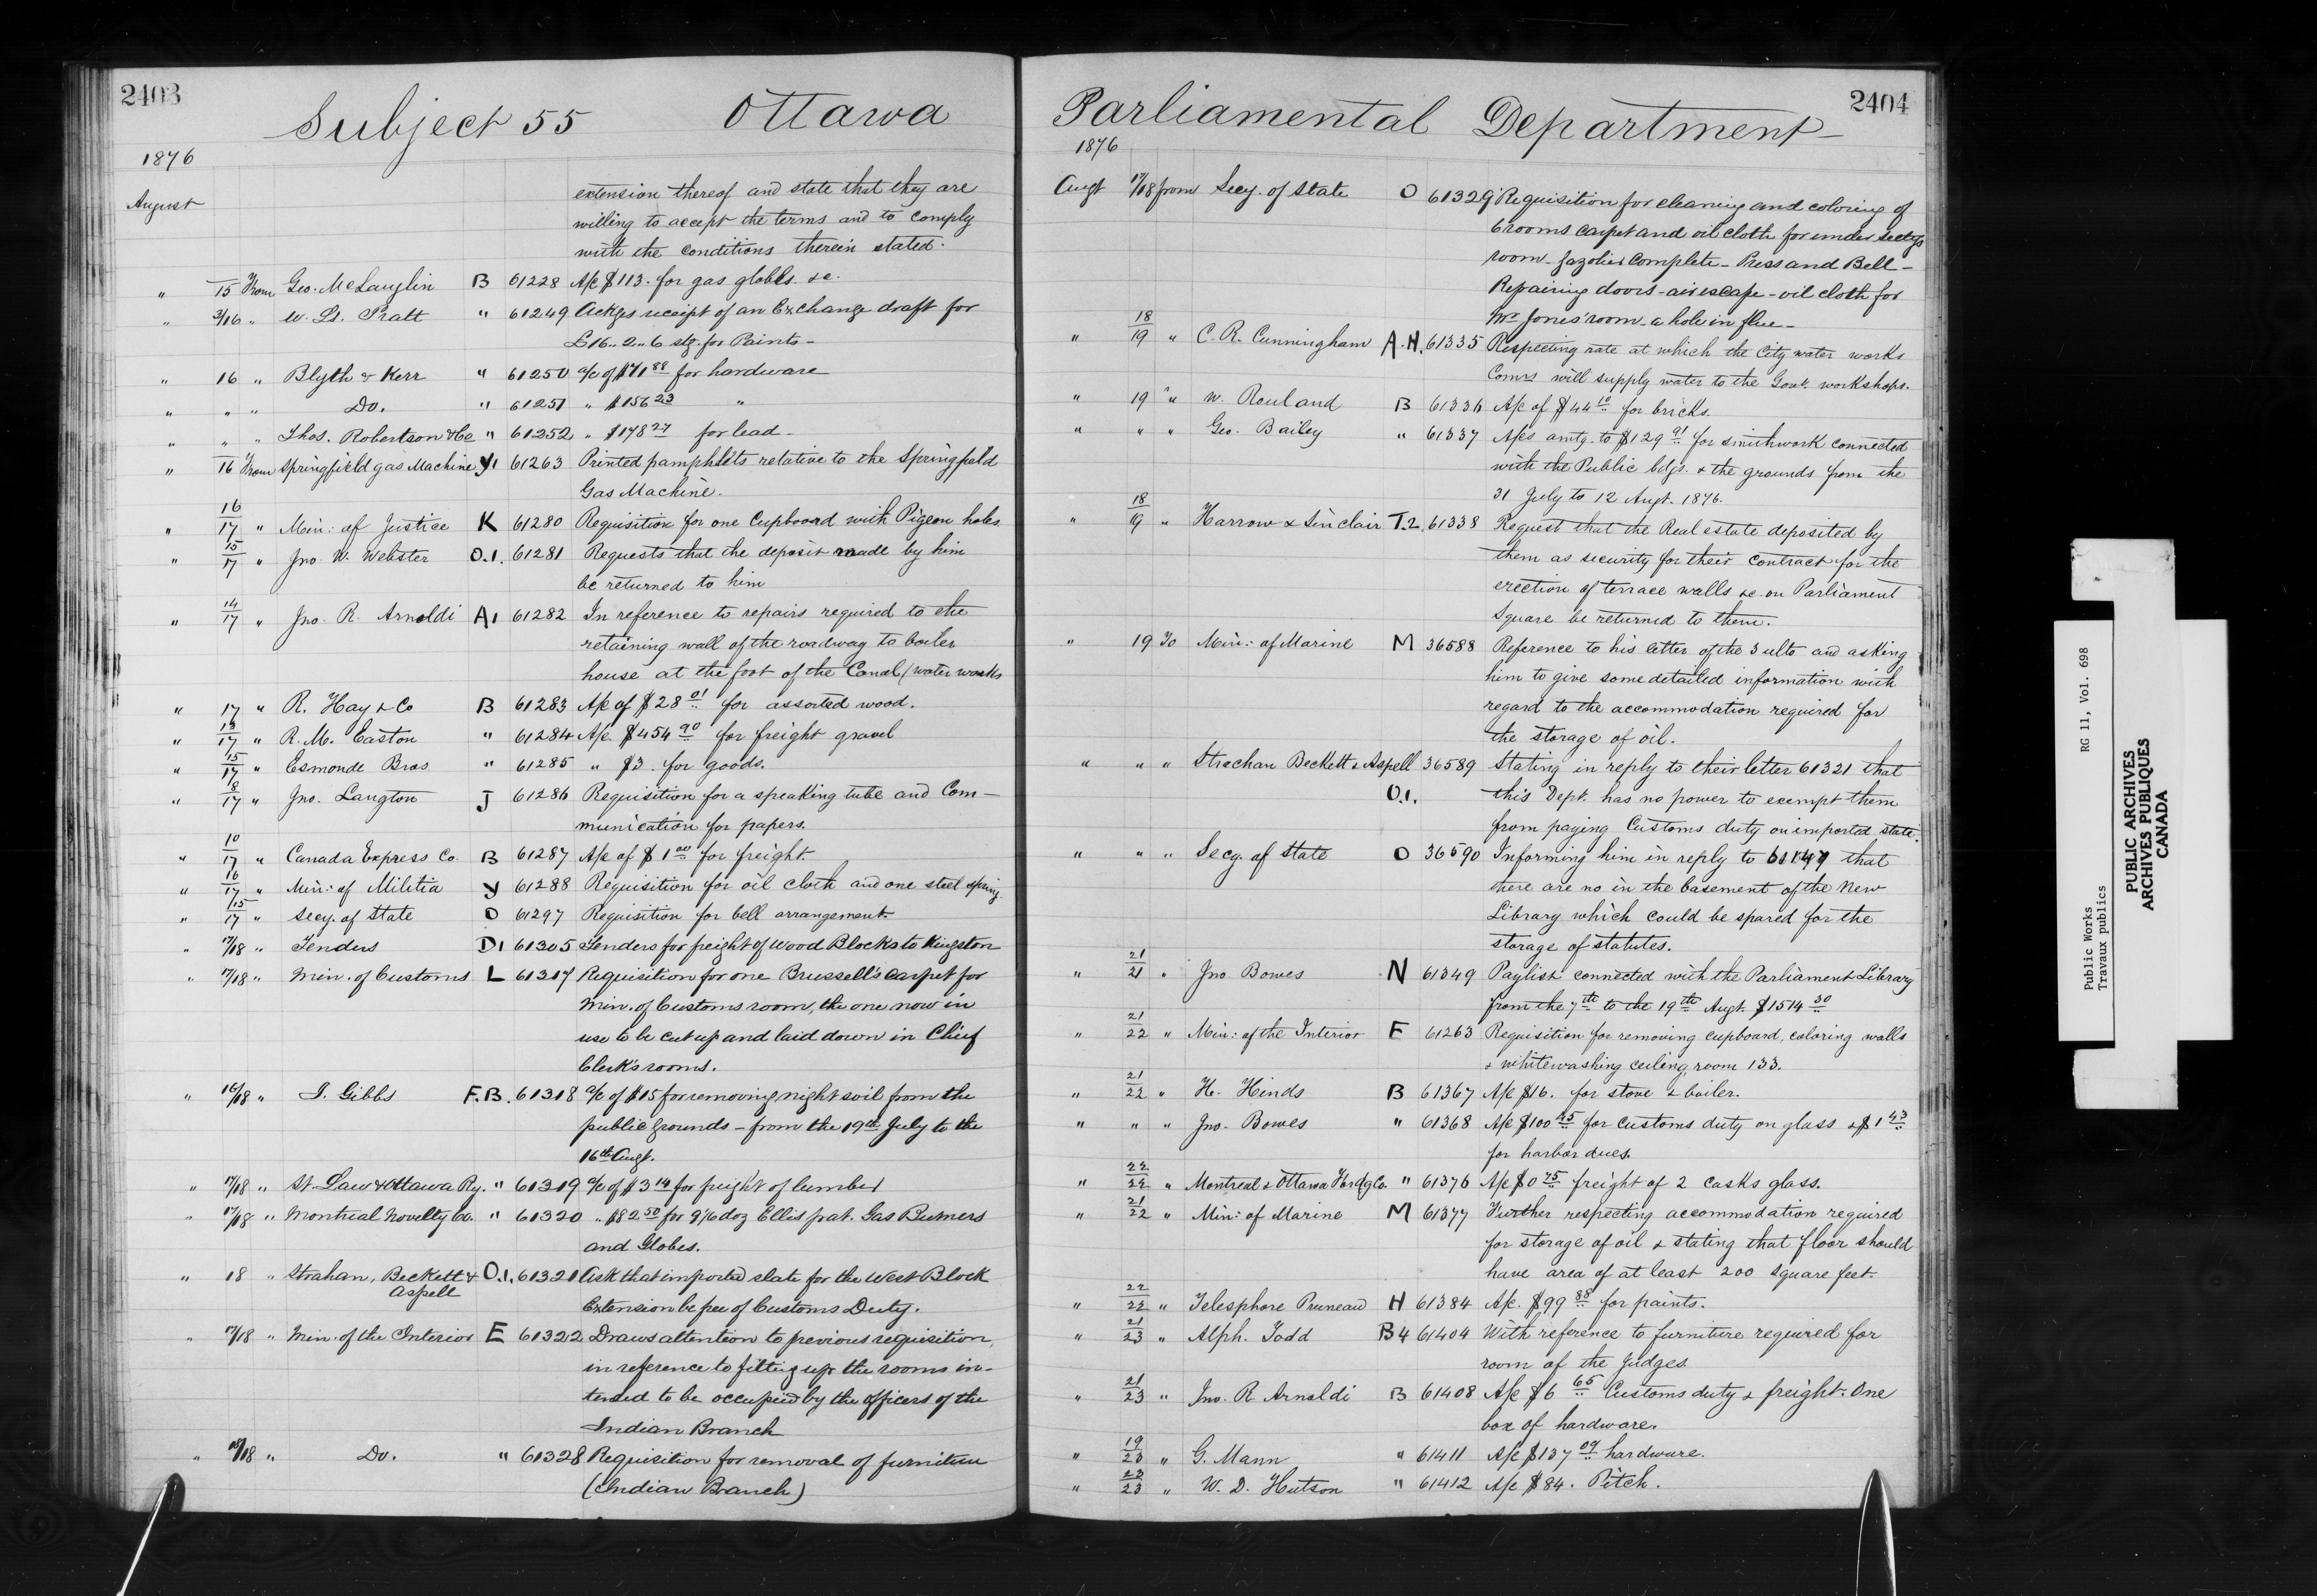 2403
Subject 55 Ottawa
1876
August
extension thereof and state that they are
willing to accept the terms and to comply
with the conditions therein stated.
" 15 From Geo. McLauglin B 61228 A/c $113. for gas globes. &c.
" 3/16 " W. Ll. Pratt " 61249 Ackges receipt of an Exchange draft for
£16..2..6 stg. for Paints-
" 16 " Blyth & Kerr " 61250 a/c of $71 88 for hardware
" " " Do. " 61251 " $156 23 "
" " " Thos. Robertson & Co " 61252 " $178 27 for lead-
" 16 From Springfield gas Machine Y1 61263 Printed pamphlets relative to the Springfield
Gas Machine.
" 16/17 " Min: of Justice K 61280 Requisition for one Cupboard with Pigeon holes
" 15/17 " Jno. W. Webster O.1. 61281 Requests that the deposit made by him
be returned to him
" 14/17 " Jno. R. Arnoldi A1 61282 In reference to repairs required to the
retaining wall of the roadway to boiler
house at the foot of the Canal (water works
" 17 " R. Hay & Co B 61283 A/c of $28 01 for assorted wood.
" 13/17 " R. M. Easton " 61284 A/c. $454 90 for freight gravel
" 15/17 " Esmonde Bros. " 61285 " $3. for goods.
" 8/17 " Jno. Langton J 61286 Requisition for a speaking tube and Com-
munication for papers.
" 10/17 " Canada Express Co. B 61287 A/c of $1 00 for freight.
" 16/17 " Min: of Militia y 61288 Requisition for oil cloth and one steel spring
" 15/17 " Secy. of State O 61297 Requisition for bell arrangement.
" 17/18 " Tenders D1 61305 Tenders for freight of Wood Blocks to Kingston
" 17/18 " Min. of Customs L 61317 Requisition for one Brussell's carpet for
Min. of Customs room, the one now in
use to be cut up and laid down in Chief
Clerk's rooms.
" 16/18 " I. Gibbs F.B. 61318 a/c of $15 for removing night soil from the
public grounds - from the 19th July to the
16th Augt.
" 17/18 " St. Law & Ottawa Ry. " 61319 a/c of $3 14 for freight of lumber
" 17/18 " Montreal Novelty Co. " 61320 " $82 50 for 9 1/6 doz Ellis pat. Gas Burners
and Globes.
" 18 " Strahan, Beckett & O.1. 61321 Ask that imported slate for the West Block
Aspell
Extension be free of Customs Duty.
" 17/18 " Min. of the Interior E 61322 Draws attention to previous requisition,
in reference to fitting up the rooms in-
tended to be occupied by the officers of the
Indian Branch
" 18/18 " Do. " 61328 Requisition for removal of furniture
(Indian Branch)
2404
Parliamental Department
1876
Augt 17/18 from Secy. of State O 61329 Requisition for cleaning and coloring of
6 rooms carpet and oil cloth for under Sectys
room - gazolier complete - Press and Bell -
Repairing doors - air escape - oil cloth for
Mr Jones' room - a hole in flue -
" 18/19 " C. R. Cunningham A.H. 61335 Respecting rate at which the City water works
Comrs will supply water to the Govt. workshops.
" 19 " W. Rouland B 61336 A/c of $44 10 for bricks.
" " " Geo. Bailey " 61337 A/cs amtg. to $129 91 for smithwork connected
with the Public bdgs. & the grounds from the
31 July to 12 Augt. 1876.
" 18/19 " Harrow & Sinclair T.2. 61338 Request that the Real estate deposited by
them as security for their contract for the
erection of terrace walls &c. on Parliament
Square be returned to them.
" 19 To Min: of Marine M 36588 Reference to his letter of the 3 ulto and asking
him to give some detailed information with
regard to the accommodation required for
the storage of oil.
" " " Strachan Beckett & Aspell 36589 Stating in reply to their letter 61321 that
O.1. this Dept. has no power to exempt them
from paying Customs duty on imported slate.
" " " Secy. of State O 36590 Informing him in reply to 61147 that
there are no in the basement of the New
Library which could be spared for the
storage of statutes.
" 21/21 " Jno. Bowes N 61349 Paylist connected with the Parliament Library
from the 7th to the 19th Augt. $1514 30
" 21/22 " Min: of the Interior E 61263 Requisition for removing cupboard, coloring walls
& whitewashing ceiling, room 133.
" 21/22 " H. Hinds B 61367 A/c $16. for stove & boiler.
" " " Jno. Bowes " 61368 A/c $100 45 for customs duty on glass & $1 43
for harbor dues.
" 22/22 " Montreal & Ottawa Fordg Co. " 61376 A/c $0 75 freight of 2 casks glass.
" 21/22 " Min: of Marine M 61377 Further respecting accommodation required
for storage of oil & stating that floor should
have area of at least 200 square feet.
" 22/22 " Telesphore Pruneau H 61384 A/c. $99 88 for paints.
" 21/23 " Alph. Todd B4 61404 With reference to furniture required for
room of the Judges.
" 21/23 " Jno. R. Arnoldi B 61408 A/c $6 65 Customs duty & freight. One
box of hardware.
" 19/23 " G. Mann " 61411 A/c $137 09 hardware.
" 23/23 " W. D. Hutson " 61412 A/c $84. Pitch.
Public Works RG 11, Vol. 698
Travaux publics
PUBLIC ARCHIVES
ARCHIVES PUBLIQUES
CANADA